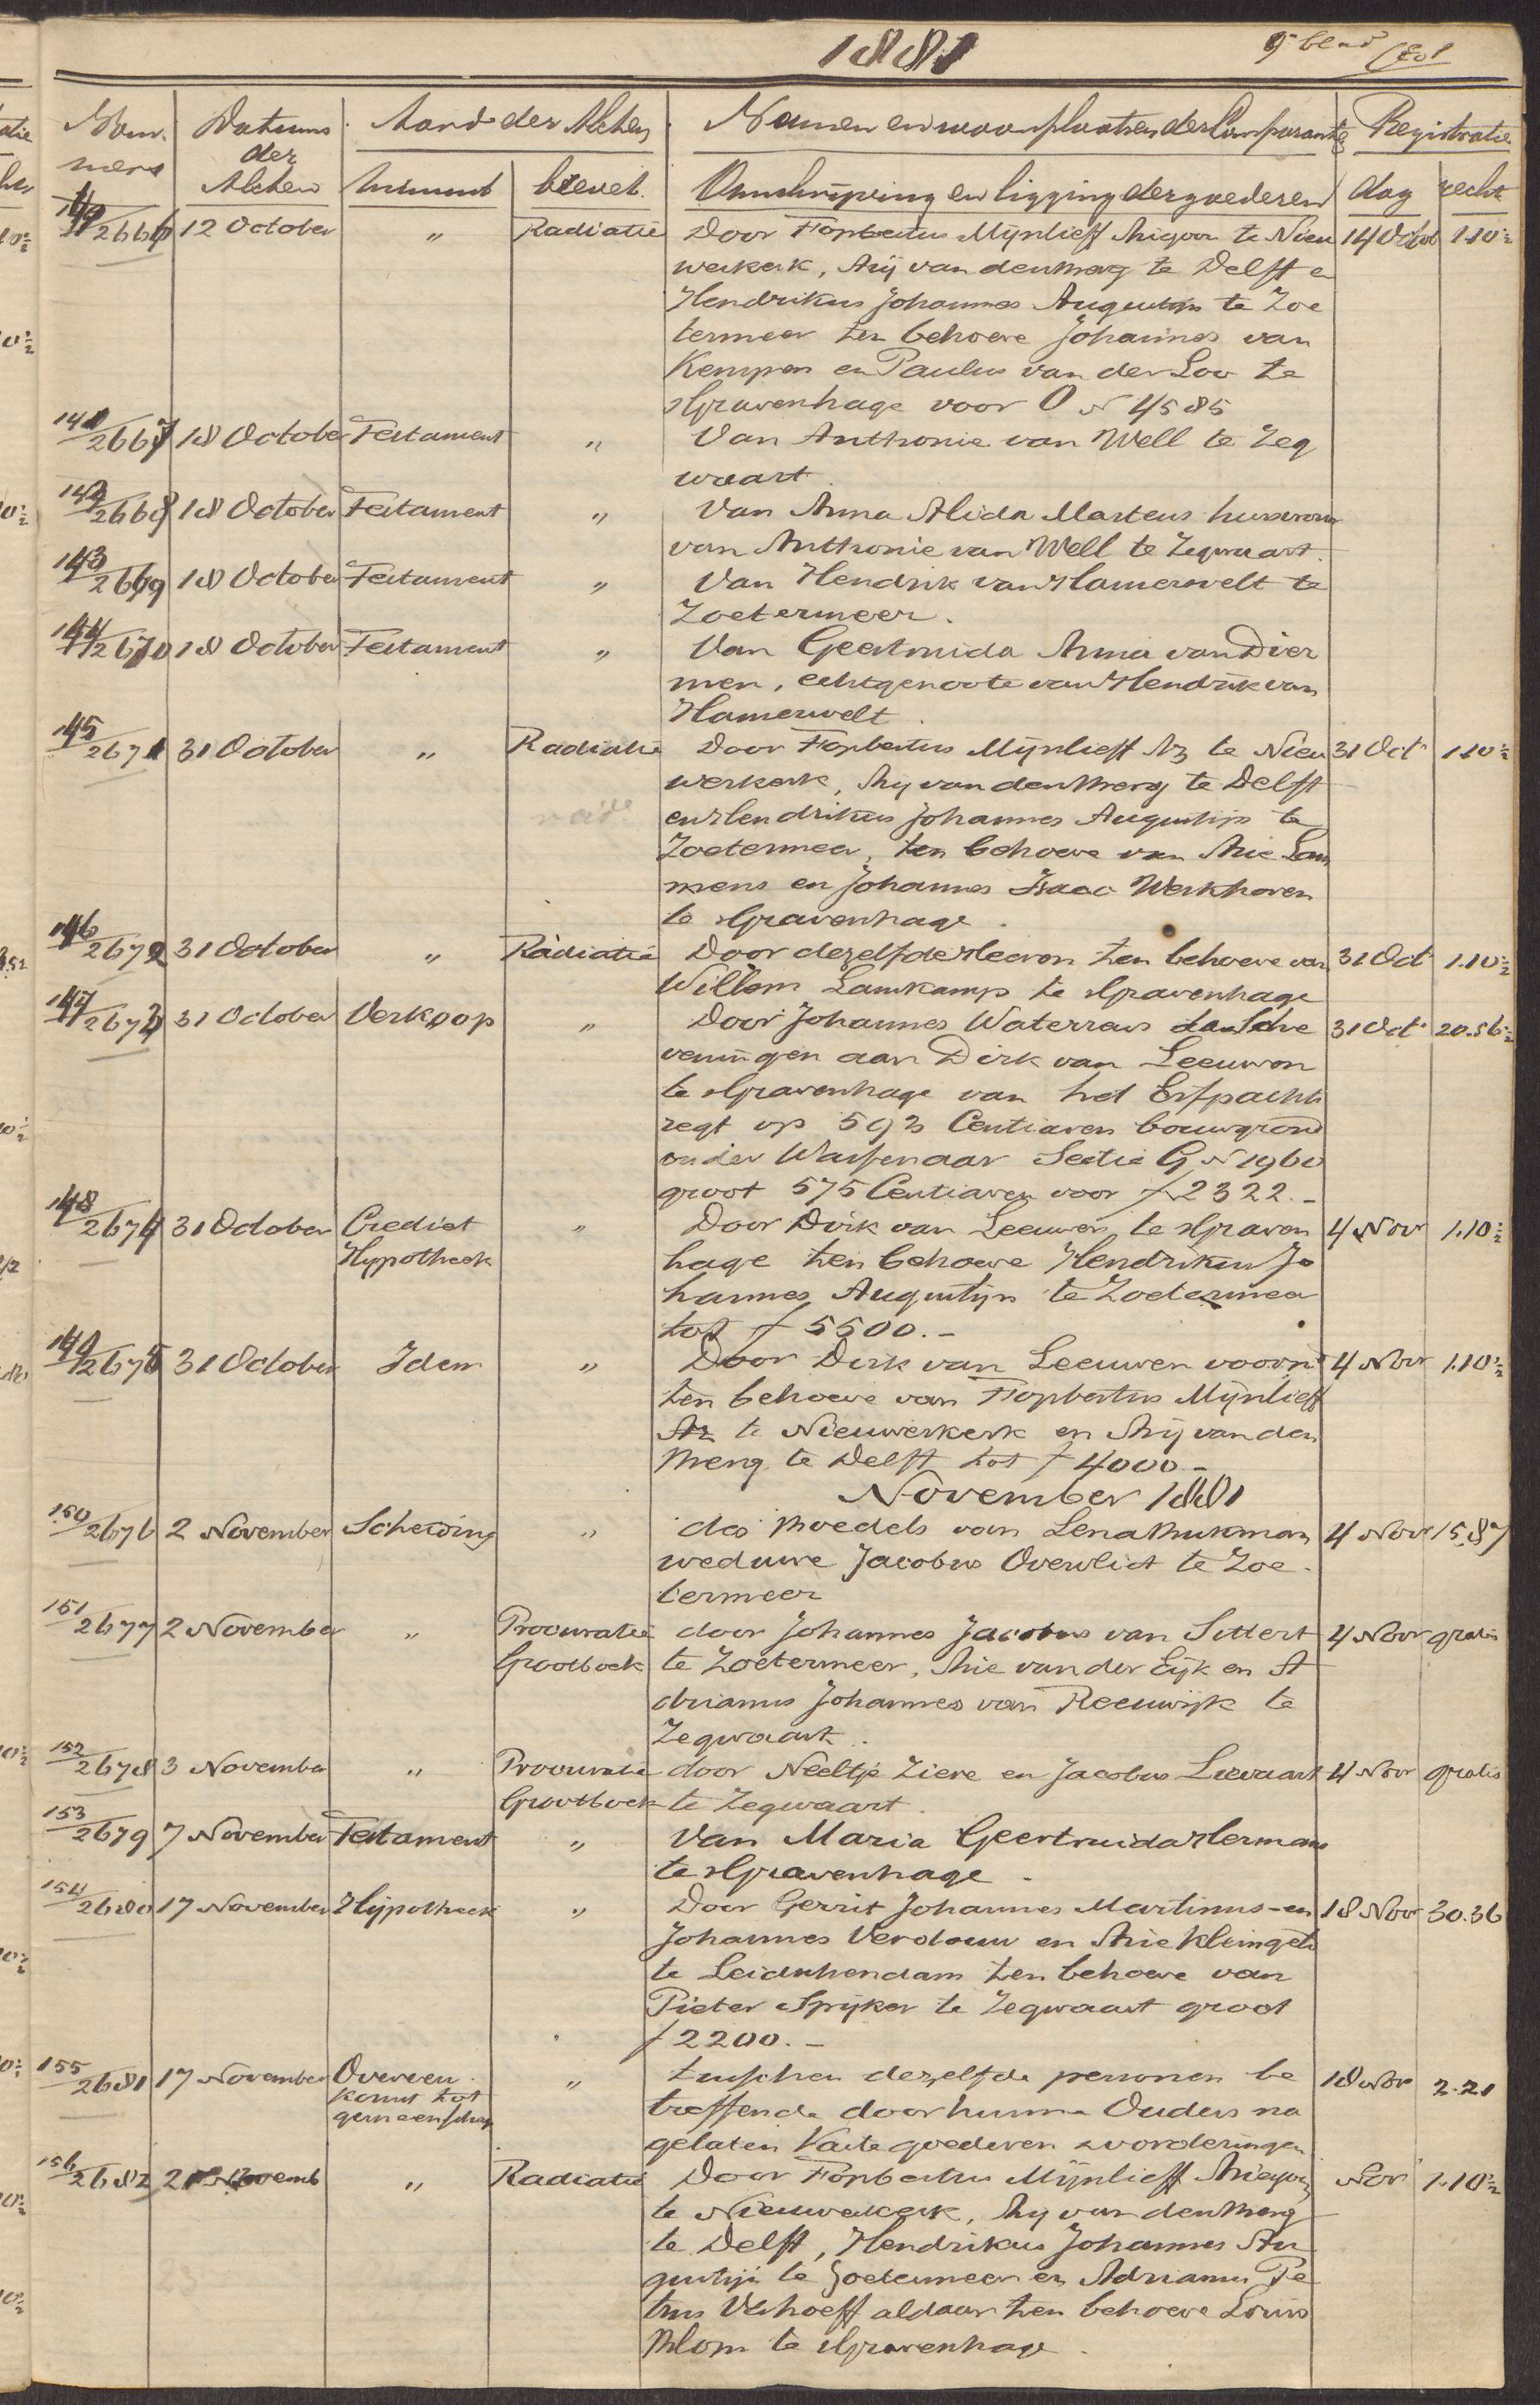 1881
9e blad
Nom- Datums Aard der Akten Namen en woonplaatsen der Comparanten Registratie
mers der
Akten minuut brevet Omschrijving en ligging der goederen dag recht
140/2666 12 October " Radiatie Door Fopbertus Mijnlieff Arijszoon te Nieu 14 Octob 1.10½
werkerk, Arij van den Berg te Delft en
Hendrikus Johannes Augustijn te Zoe
termeer ten behoeve Johannes van
Kempen en Paulus van der Loo te
sGravenhage voor O N 4585
141/2667 18 October Testament " Van Anthonie van Well te Zeg
waart.
142/2668 18 October Testament " Van Anna Alida Martens huisvrouw
van Anthonie van Well te Zegwaart.
143/2669 18 October Testament " Van Hendrik van Hamersvelt te
Zoetermeer.
144/2670 18 October Testament " Van Geertruida Anna van Dier
men, echtgenoote van Hendrik van
Hamersvelt.
145/2671 31 October " Radiatie Door Fopbertus Mijnlieff Az te Nieu 31 Oct 1.10½
werkerk, Arij van den Berg te Delft
en Hendrikus Johannes Augustijn te
Zoetermeer, ten behoeve van Arie Lam
mens en Johannes Isaac Werkhoven
te sGravenhage.
146/2672 31 October " Radiatie Door dezelfde Heeren ten behoeve van 31 Oct 1.10½
Willem Lamkamp te sGravenhage
147/2673 31 October Verkoop " Door Johannes Waterreus te Sche 31 Oct 20.56½
veningen aan Dirk van Leeuwen
te sGravenhage van het Erfpachts
regt op 593 Centiaren bouwgrond
onder Wassenaar Sectie G N 1960
groot 575 Centiaren voor ƒ 2322.-
148/2674 31 October Crediet " Door Dirk van Leeuwen te sGraven 4 Nov 1.10½
Hypotheek hage ten behoeve Hendrikus Jo
hannes Augustijn te Zoetermeer
tot ƒ 5500.-
149/2675 31 October Idem " Door Dirk van Leeuwen voornd 4 Nov 1.10½
ten behoeve van Fopbertus Mijnlieff
Az te Nieuwerkerk en Arij van den
Berg te Delft tot ƒ 4000.-
November 1881
150/2676 2 November Scheiding " des Boedels van Lena Buikman 4 Nov 15.87
weduwe Jacobus Overvliet te Zoe-
termeer
151/2677 2 November " Procuratie door Johannes Jacobus van Sittert 4 Nov gratis
Grootboek te Zoetermeer, Arie van der Eijk en A
drianus Johannes van Reeuwijk te
Zegwaart.
152/2678 3 November " Procuratie door Neeltje Ziere en Jacobus Lievaart 4 Nov gratis
Grootboek te Zegwaart.
153/2679 7 November Testament " Van Maria Geertruida Hermans
te sGravenhage.
154/2680 17 November Hypotheek " Door Gerrit Johannes Martinus- en 18 Nov 30.36
Johannes Verdouw en Arie Kleingeld
te Leidschendam ten behoeve van
Pieter Spijker te Zegwaart groot
ƒ 2200.-
155/2681 17 NovemberOvereen " tusschen dezelfde personen be 18 Nov 2.21
komst tot treffende door hunne Ouders na
gemeenschap gelaten Vaste goederen vorderingen
156/2682 21 Novemb " Radiatie Door Fopbertus Mijnlieff Arieszoon Nov 1.10½
te Nieuwerkerk, Arij van den Berg
te Delft, Hendrikus Johannes Au
gustijn te Zoetermeer en Adrianus Pe
trus Verhoeff aldaar ten behoeve Louis
Blom te sGravenhage.